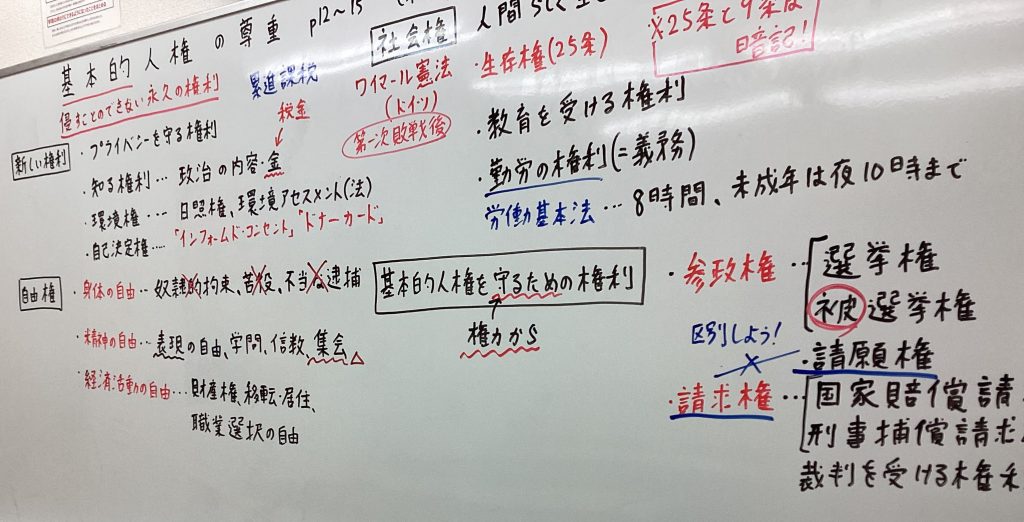 基本的人権の尊重 p12〜15
侵すことのできない永久の権利
新しい権利
・プライバシーを守る権利
・知る権利… 政治の内容・金
・環境権… 日照権、環境アセスメント(法)
・自己決定権…「インフォームド・コンセント」「ドナーカード」
累進課税
税金
自由権
・身体の自由… 奴隷的拘束、苦役、不当な逮捕
・精神の自由… 表現の自由、学問、信教、集会△
・経済活動の自由… 財産権、移転・居住、
職業選択の自由
社会権
人間らしく生
ワイマール憲法
(ドイツ)
第一次敗戦後
・生存権(25条)
※25条と9条は
暗記!
・教育を受ける権利
・勤労の権利(=義務)
労働基本法… 8時間、未成年は夜10時まで
基本的人権を守るための権利
権力から
・参政権… 選挙権
被選挙権
区別しよう!
・請願権
・請求権… 国家賠償請
刑事補償請求
裁判を受ける権利